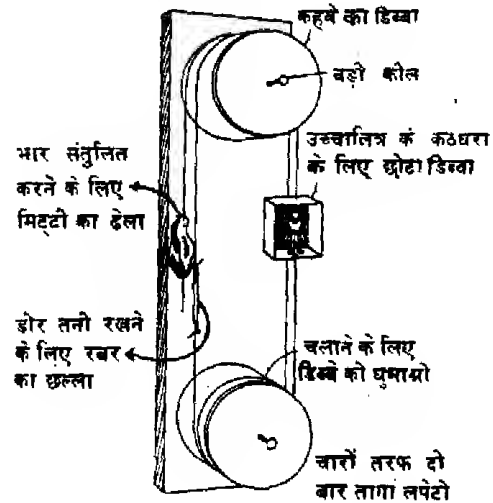 कहवे का डिब्बा
बड़ी कील
उच्चालित्र के कठघरा
के लिए छोटा डिब्बा
भार संतुलित
करने के लिए
मिट्टी का ढेला
डोर तनी रखने
के लिए रबर
का छल्ला
चलाने के लिए
डिब्बे को घुमाओ
चारों तरफ दो
बार तागा लपेटो